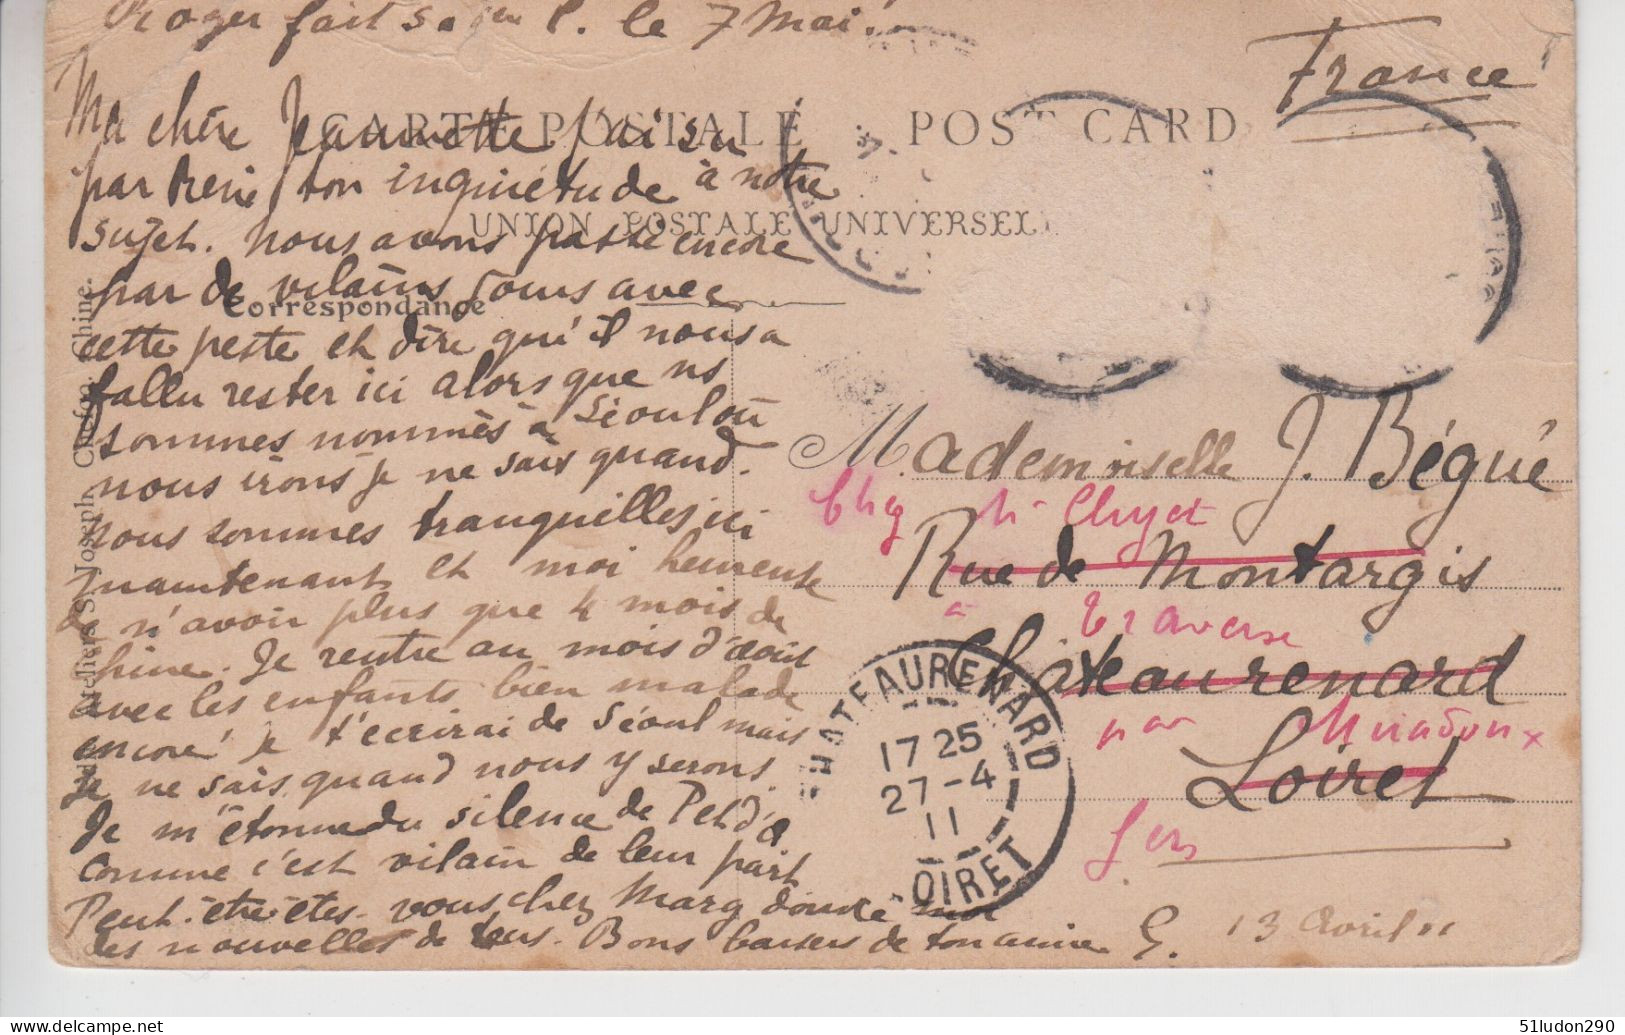 Roger fait sa 1ère C. le 7 Mai.
France
CARTE POSTALE POST CARD
Ma chère Jeannette j'ai su
par René ton inquiétude à notre
sujet. Nous avons passé encore
UNION POSTALE UNIVERSEL
par de vilains jours avec
Correspondance
cette peste et dire qu'il nous a
fallu rester ici alors que ns
sommes nommés à Séoul où
nous irons je ne sais quand.
nous sommes tranquilles ici
maintenant et moi heureuse
de n'avoir plus que 4 mois de
Chine. Je rentre au mois d'août
avec les enfants bien malade
encore je t'écrirai de Séoul mais
je ne sais quand nous y serons.
Je m'étonne du silence de P et d'A
comme c'est vilain de leur part
Peut-être êtes-vous chez Marg donne moi
des nouvelles de tous. Bons baisers de ton amie G.
13 Avril 11
Mademoiselle J. Bégué
Chez Mr
Rue de Montargis
à Traverse
Châteaurenard
par Miradoux
Loiret
Gers
CHATEAURENARD
17 25
27-4
11
LOIRET
Ateliers St Joseph Chefoo. Chine.
51ludon290